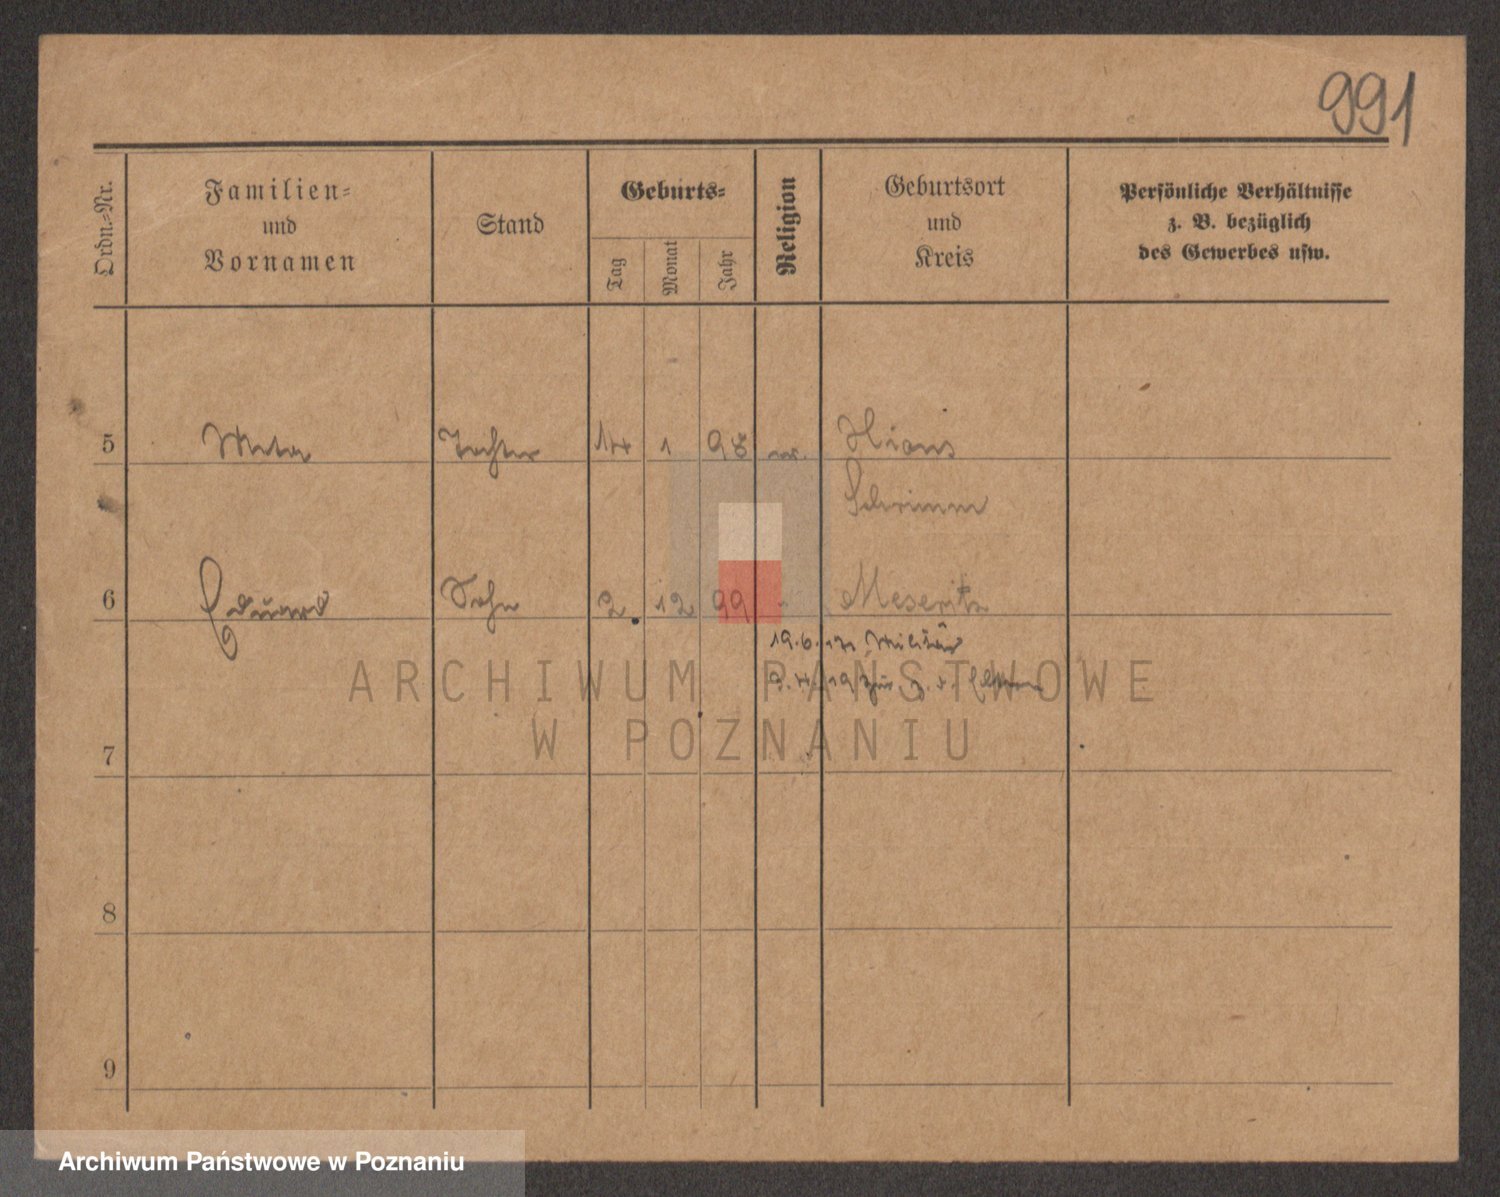 991
Ordn.-Nr.
Familien-
und
Vornamen
Stand
Geburts-
Tag
Monat
Jahr
Religion
Geburtsort
und
Kreis
Persönliche Verhältnisse
z. B. bezüglich
des Gewerbes usw.
5 Meta Tochter 14 1 98 ev. Xions
Schrimm
6 Eduard Sohn 2. 12 99 - Meseritz
19.6.17 Militär
19 zur.
ARCHIWUM PAŃSTWOWE
W POZNANIU
7
8
9
Archiwum Państwowe w Poznaniu